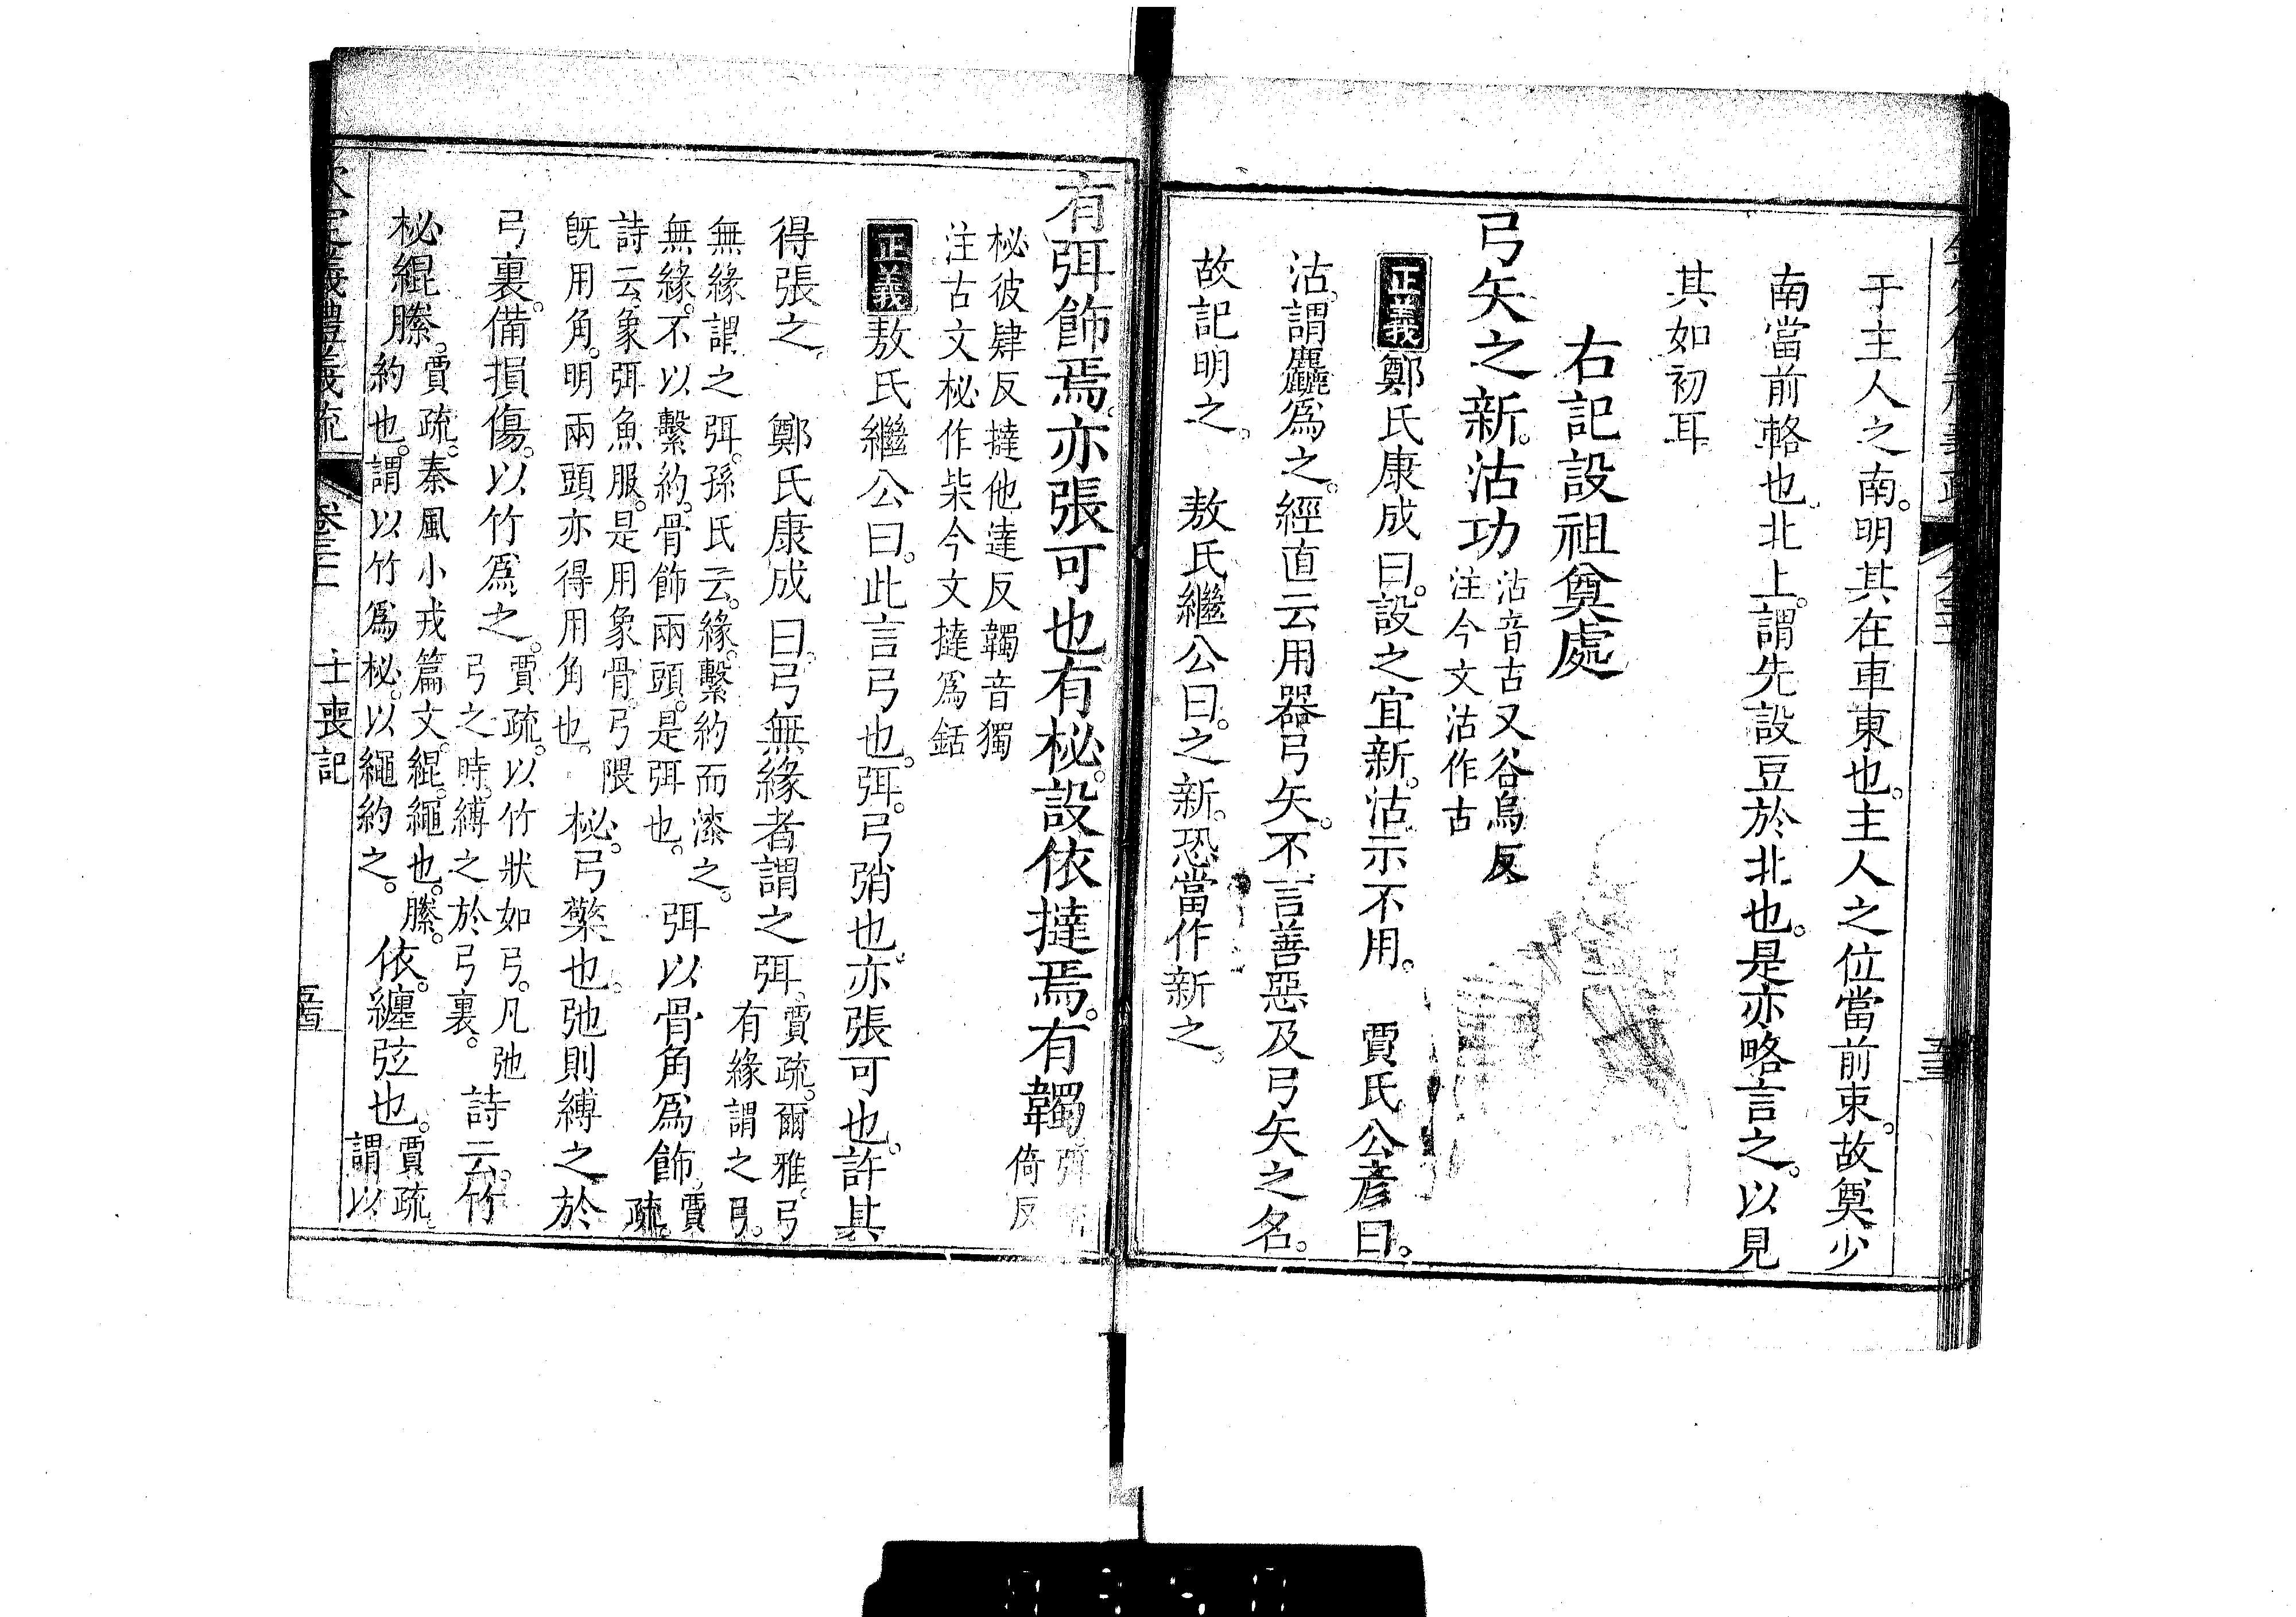 于主人之南。明其在車東也。主人之位當前束。故奠少
南當前輅也。北上。謂先設豆於北也。是亦略言之。以見
其如初耳
右記設祖奠處
弓矢之新。沽功
沽音古又谷烏反
注今文沽作古
正義鄭氏康成曰。設之宜新。沽示不用。 賈氏公彥曰。
沽。謂麤爲之。經直云用器弓矢。不言善惡及弓矢之名。
故記明之。 敖氏繼公曰。之新。恐當作新之。
有弭飾焉。亦張可也。有柲。設依撻焉。有韣
倚反
柲彼肆反撻他達反韣音獨
注古文柲作柴今文撻爲銛
正義敖氏繼公曰。此言弓也。弭。弓弰也。亦張可也。許其
得張之。 鄭氏康成曰。弓無緣者謂之弭。
賈疏。爾雅。弓
有緣謂之弓。
無緣謂之弭。孫氏云。緣。繫約而漆之。
無緣。不以繫約。骨飾兩頭。是弭也。
弭以骨角爲飾。
賈
疏。
詩云。象弭魚服。是用象骨。弓隈
旣用角。明兩頭亦得用角也。
柲。弓檠也。弛則縛之於
弓裏。備損傷。以竹爲之。
賈疏。以竹狀如弓。凡弛
弓之時。縛之於弓裏。
詩云。竹
柲緄縢。
賈疏。秦風小戎篇文。緄。繩也。縢。
約也。謂以竹爲柲。以繩約之。
依。纏弦也。
賈疏。
謂以
義禮義疏 卷三二 士喪記